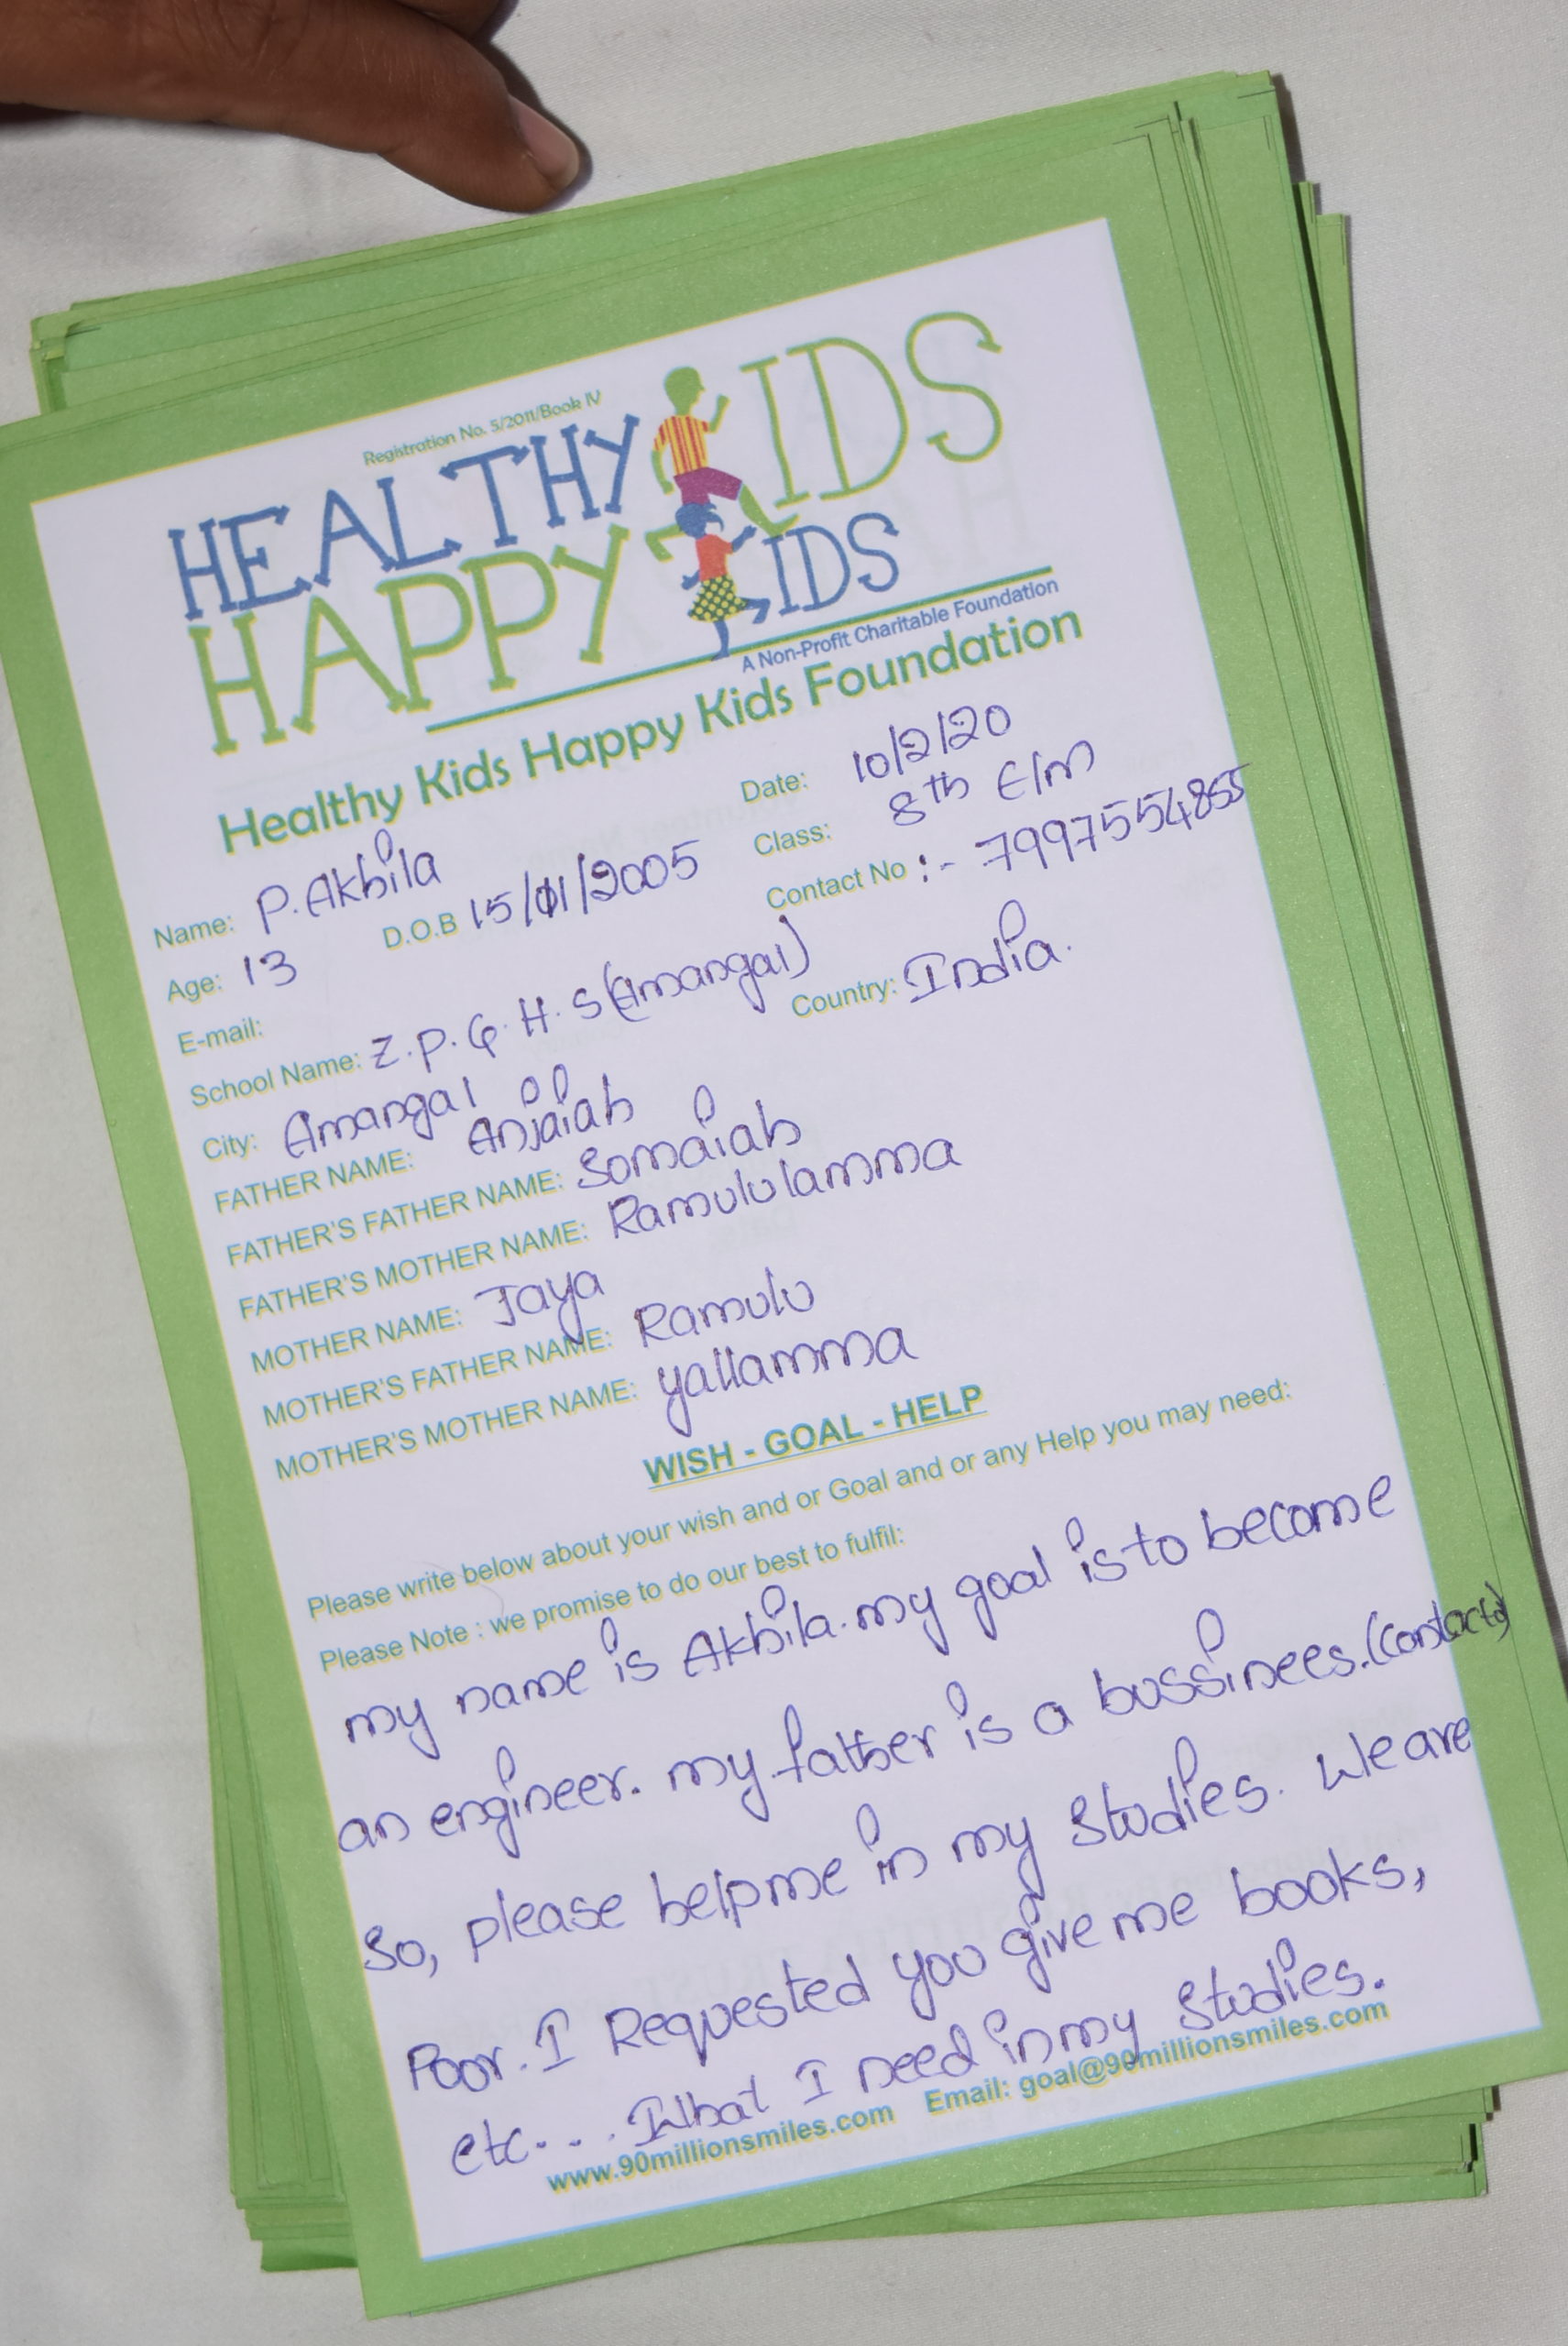 Registration No. 5/2011/Book IV
HEALTHY KIDS
HAPPY KIDS
A Non-Profit Charitable Foundation
Healthy Kids Happy Kids Foundation
Date: 10/2/20
Name: P. Akhila
Class: 8th E/m
Age: 13 D.O.B 15/01/2005
Contact No :- 7997554855
E-mail:
School Name: Z.P.G.H.S (Amangal)
City: Amangal Country: India.
FATHER NAME: Anjaiah
FATHER'S FATHER NAME: Somaiah
FATHER'S MOTHER NAME: Ramululamma
MOTHER NAME: Jaya
MOTHER'S FATHER NAME: Ramulu
MOTHER'S MOTHER NAME: yallamma
WISH - GOAL - HELP
Please write below about your wish and or Goal and or any Help you may need:
Please Note : we promise to do our best to fulfil:
my name is Akhila. my goal is to become
an engineer. my father is a bussinees.
So, please help me in my studies. We are
Poor. I Requested you give me books,
etc. . . . What I need in my studies.
www.90millionsmiles.com Email: goal@90millionsmiles.com